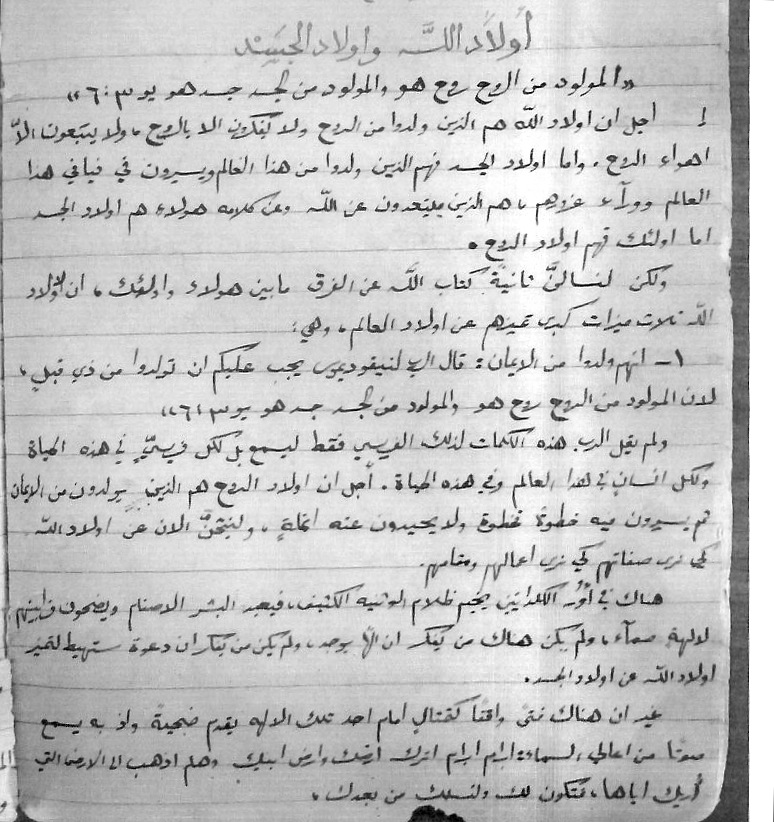 أولاد الله وأولاد الجسد
«المولود من الروح روح هو والمولود من الجسد جسد هو يو ٣: ٦»
اجل ان اولاد الله هم الذين ولدوا من الروح ولا يفكرون الا بالروح، ولا يتبعون الاّ
اهواء الروح. واما اولاد الجسد فهم الذين ولدوا من هذا العالم ويسيرون في فيافي هذا
العالم ووراء غروره، هم الذين يبتعدون عن الله وعن كلامه هولاء هم اولاد الجسد
اما اولئك فهم اولاد الروح.
ولكن لنسألنَّ ثانيةً كتاب الله عن الفرق ما بين هولاء واولئك، ان لأولاد
الله ثلاث ميزات كبرى تميزهم عن اولاد العالم، وهي:
١- انهم ولدوا من الايمان: قال الرب لنيقوديموس يجب عليكم ان تولدوا من ذي قبل،
لان المولود من الروح روح هو والمولود من الجسد جسد هو يو ٣: ٦»
ولم يقل الرب هذه الكلمات لذلك الفريسي فقط ليسمع بل لكل فريسيٍّ في هذه الحياة
ولكل انسان في هذا العالم وفي هذه الحياة. أجل ان اولاد الروح هم الذين يولدون من الايمان
ثم يسيرون فيه خطوة فخطوة ولا يحيدون عنه انملةٍ، ولنبحثنَّ الان عن اولاد الله
كي نرى صفاتهم كي نرى اعمالهم ومقامهم.
هناك في أور الكلدانيين يخيم ظلام الوثنيه الكثيف، فيعبد البشر الاصنام ويضحون قرابينهم
لالهة صماء، ولم يكن هناك من يفكر ان الهًا يوجد، ولم يكن من يفكر ان دعوة ستهبط لتميز
اولاد الله عن اولاد الجسد.
غير ان هناك فتىً واقفًا كتمثالٍ امام احد تلك الالهه يقدم ضحيةً واذ به يسمع
صوتًا من اعالي السماء: ابرام ابرام اترك ارضك وارض ابيك وهلم اذهب الى الارض التي
أريك اياها، فتكون لك ولنسلك من بعدك.